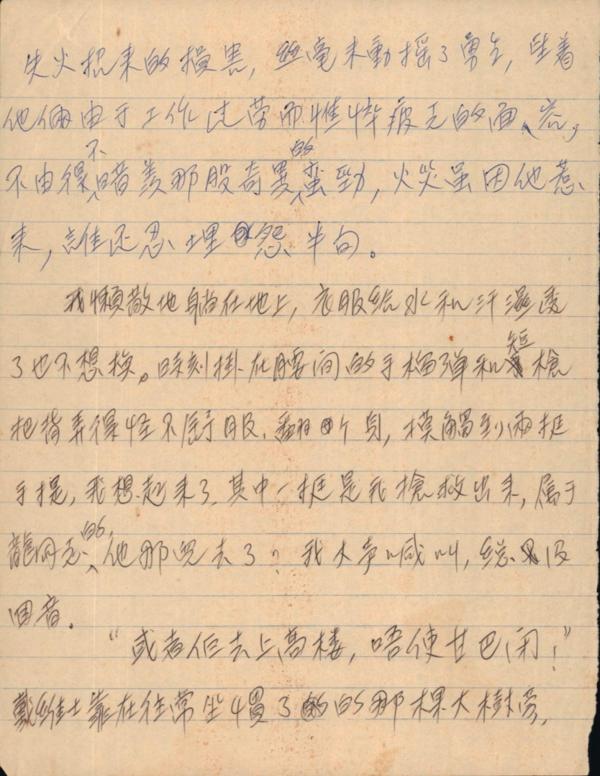 失火招来的損害，丝毫未動摇了勇士，望着
他倆由于工作过劳而憔悴疲乏的面、容，
不由得不暗羡那股奇異的蛮勁，火災虽因他惹
来，誰还忍埋怨半句。
我懶散地躺在地上，衣服给水和汗濕透
了也不想换。时刻掛在腰间的手榴弹和短槍
把背弄得怪不舒服，翻个身，摸觸到兩挺
手提，我想起来了，其中一挺是我搶救出来，属于
龍同志的，他那兒去了？我大声喊叫，总没
回音。
“或者佢去上高楼，唔使甘巴闭！”
戴維士靠在往常坐慣了的那棵大樹旁，